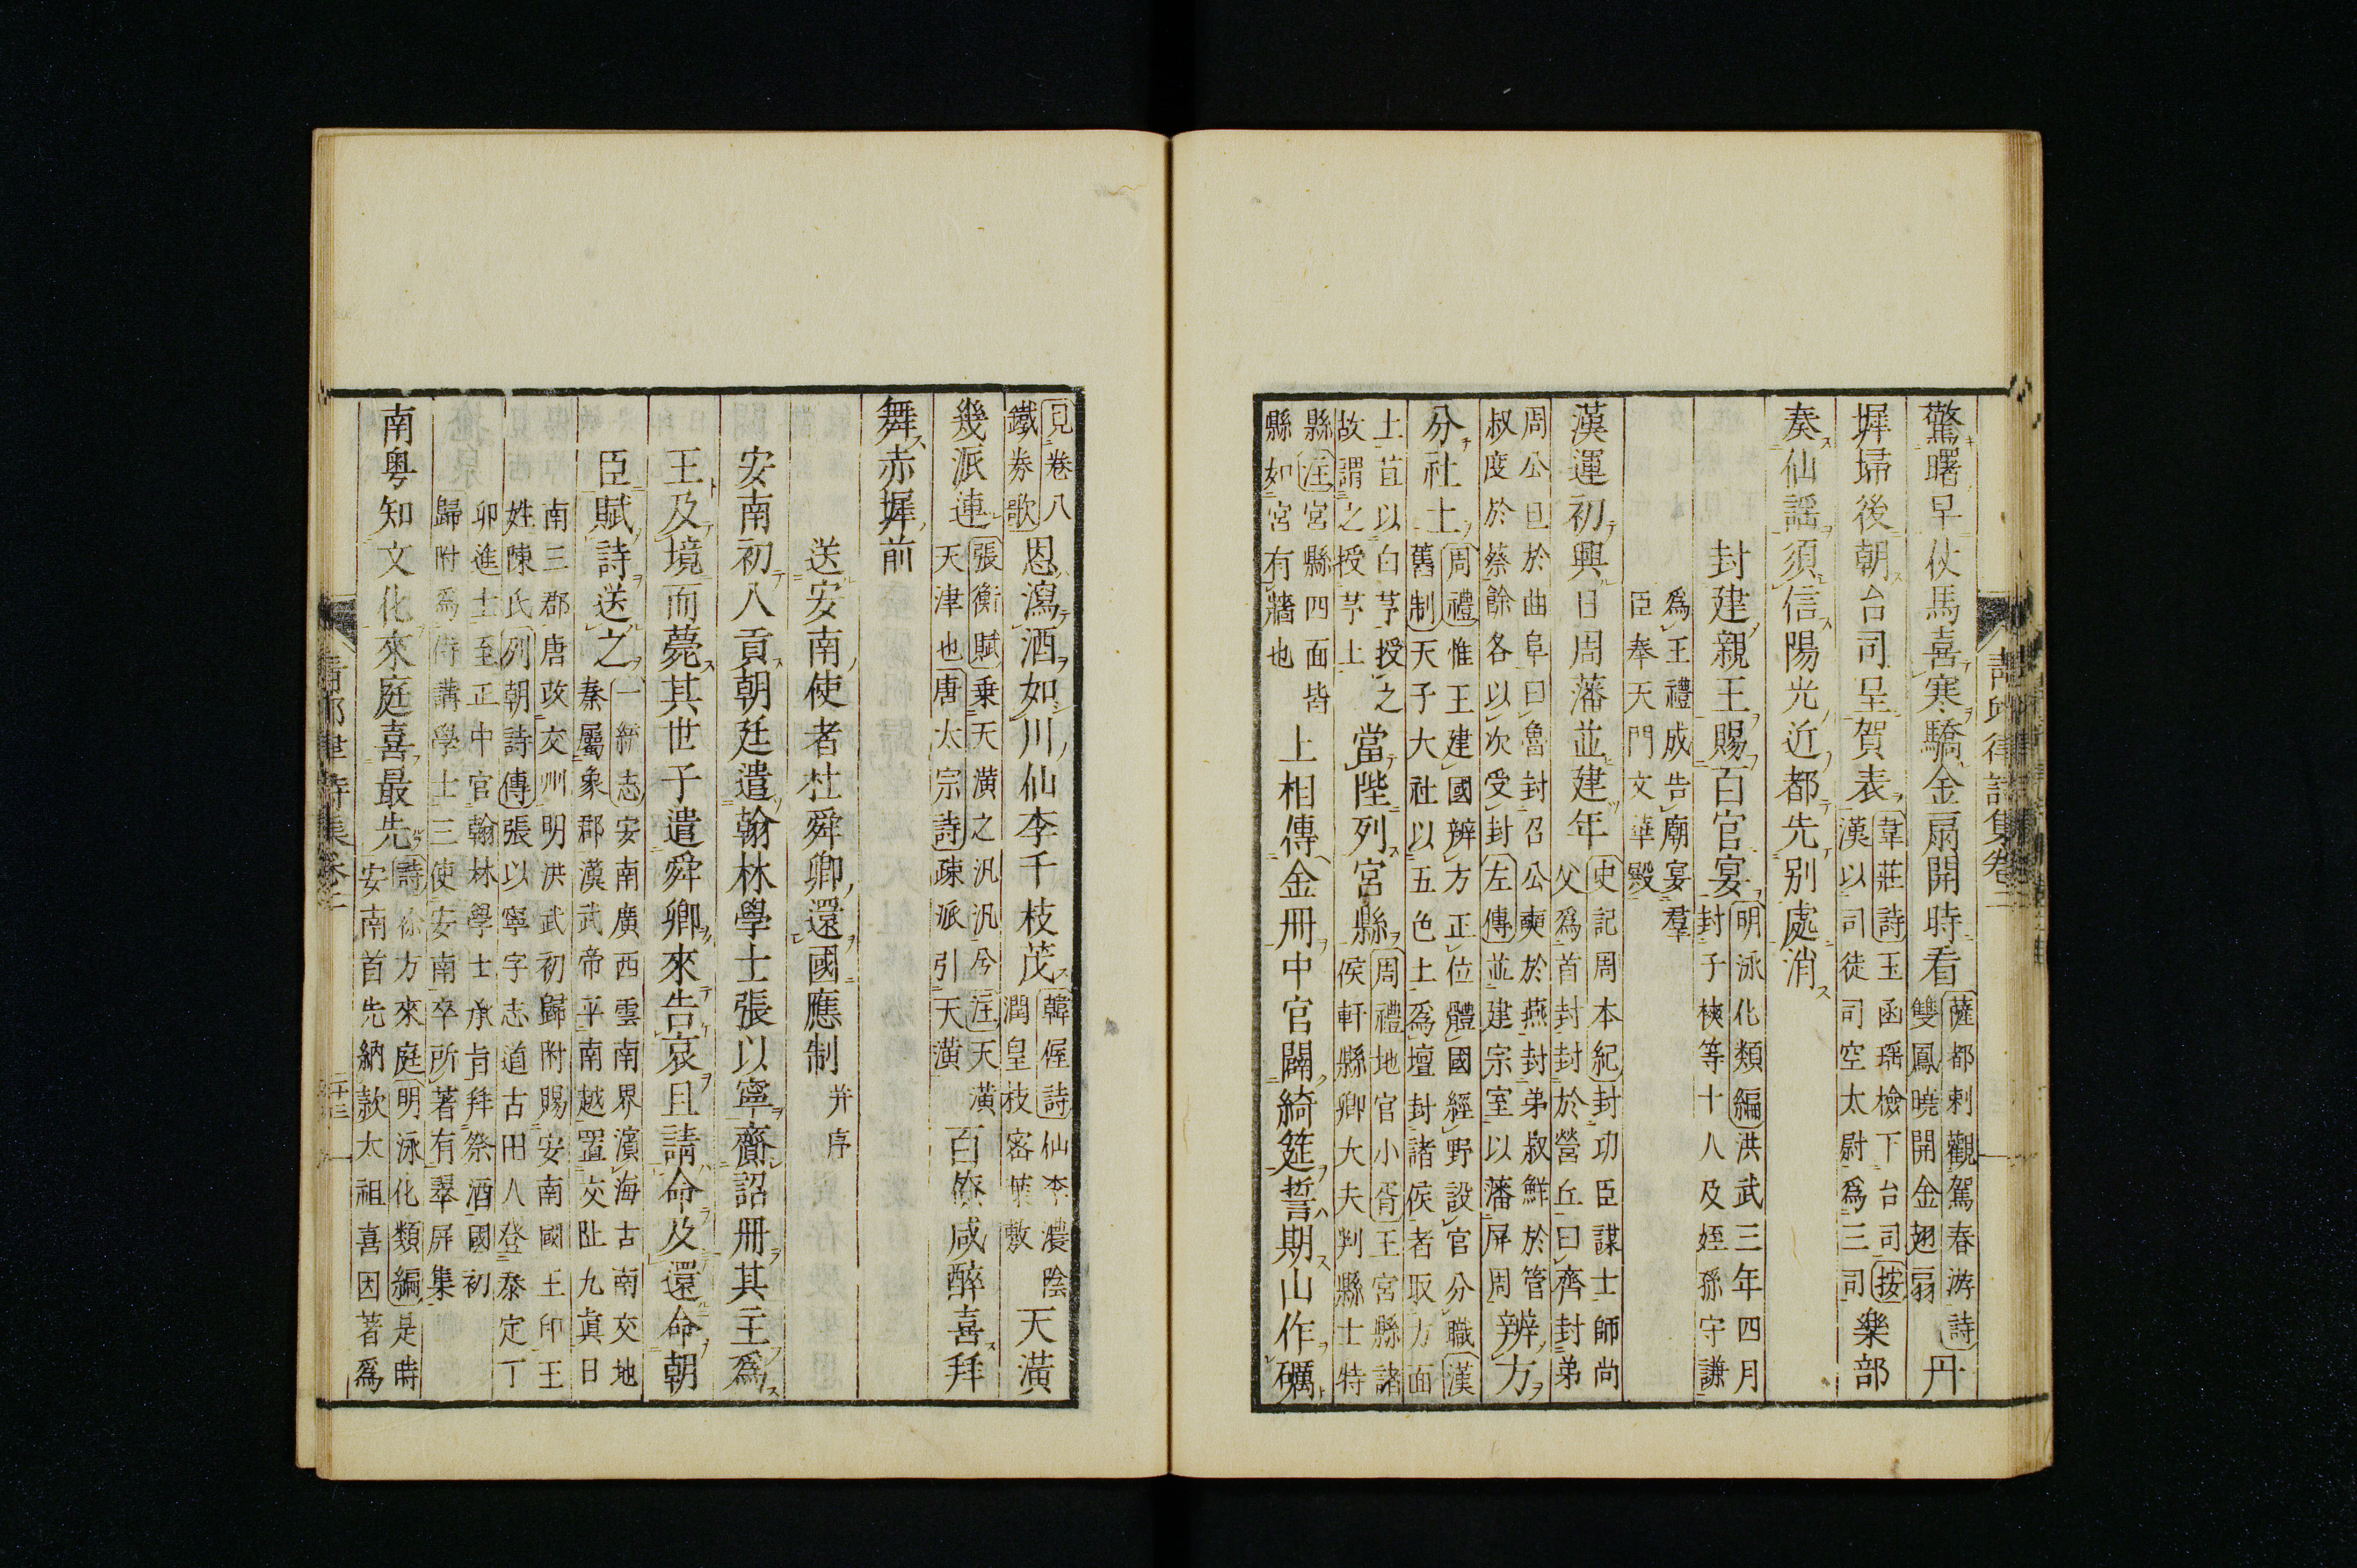 驚曙早仗馬喜寒驕金扇開時看薩都剌觀駕春游詩雙鳳曉開金翅扇丹
墀掃後朝台司呈賀表韋莊詩玉函瑶檢下台司按漢以司徒司空太尉爲三司樂部
奏仙謡須信陽光近都先别處消
封建親王賜百官宴明泳化類編洪武三年四月封子樉等十八及姪孫守謙
爲王禮成告廟宴羣臣奉天門文華殿
漢運初興日周藩並建年史記周本紀封功臣謀士師尚父爲首封封於營丘曰齊封弟
周公旦於曲阜曰魯封召公奭於燕封弟叔鮮於管叔度於蔡餘各以次受封左傳並建宗室以藩屏周辨方
分社土周禮惟王建國辨方正位體國經野設官分職漢舊制天子大社以五色土爲壇封諸侯者取方面
土苴以白茅授之故謂之授茅土當陛列宮縣周禮地官小胥王宮縣諸侯軒縣卿大夫判縣士特
縣注宮縣四面皆縣如宮有牆也上相傳金冊中官闢綺筵誓期山作礪
見卷八鐵劵歌恩瀉酒如川仙李千枝茂韓偓詩仙李濃陰潤皇枝密葉敷天潢
幾派連張衡賦乗天潢之汎汎兮注天潢天津也唐太宗詩疎派引天潢百寮咸醉喜拜
舞赤墀前
送安南使者杜舜卿還國應制并序
安南初入貢朝廷遣翰林學士張以寧齎詔冊其主爲
王及境而薨其世子遣舜卿來告哀且請命及還命朝
臣賦詩送之一統志安南廣西雲南界濵海古南交地秦屬象郡漢武帝平南越置交趾九真日
南三郡唐改交州明洪武初歸附賜安南國王印王姓陳氏列朝詩傳張以寧字志道古田人登泰定丁
卯進士至正中官翰林學士承旨拜祭酒國初歸附爲侍講學士三使安南卒所著有翠屏集
南粤知文化來庭喜最先詩徐方來庭明泳化類編是時安南首先納款太祖喜因著爲